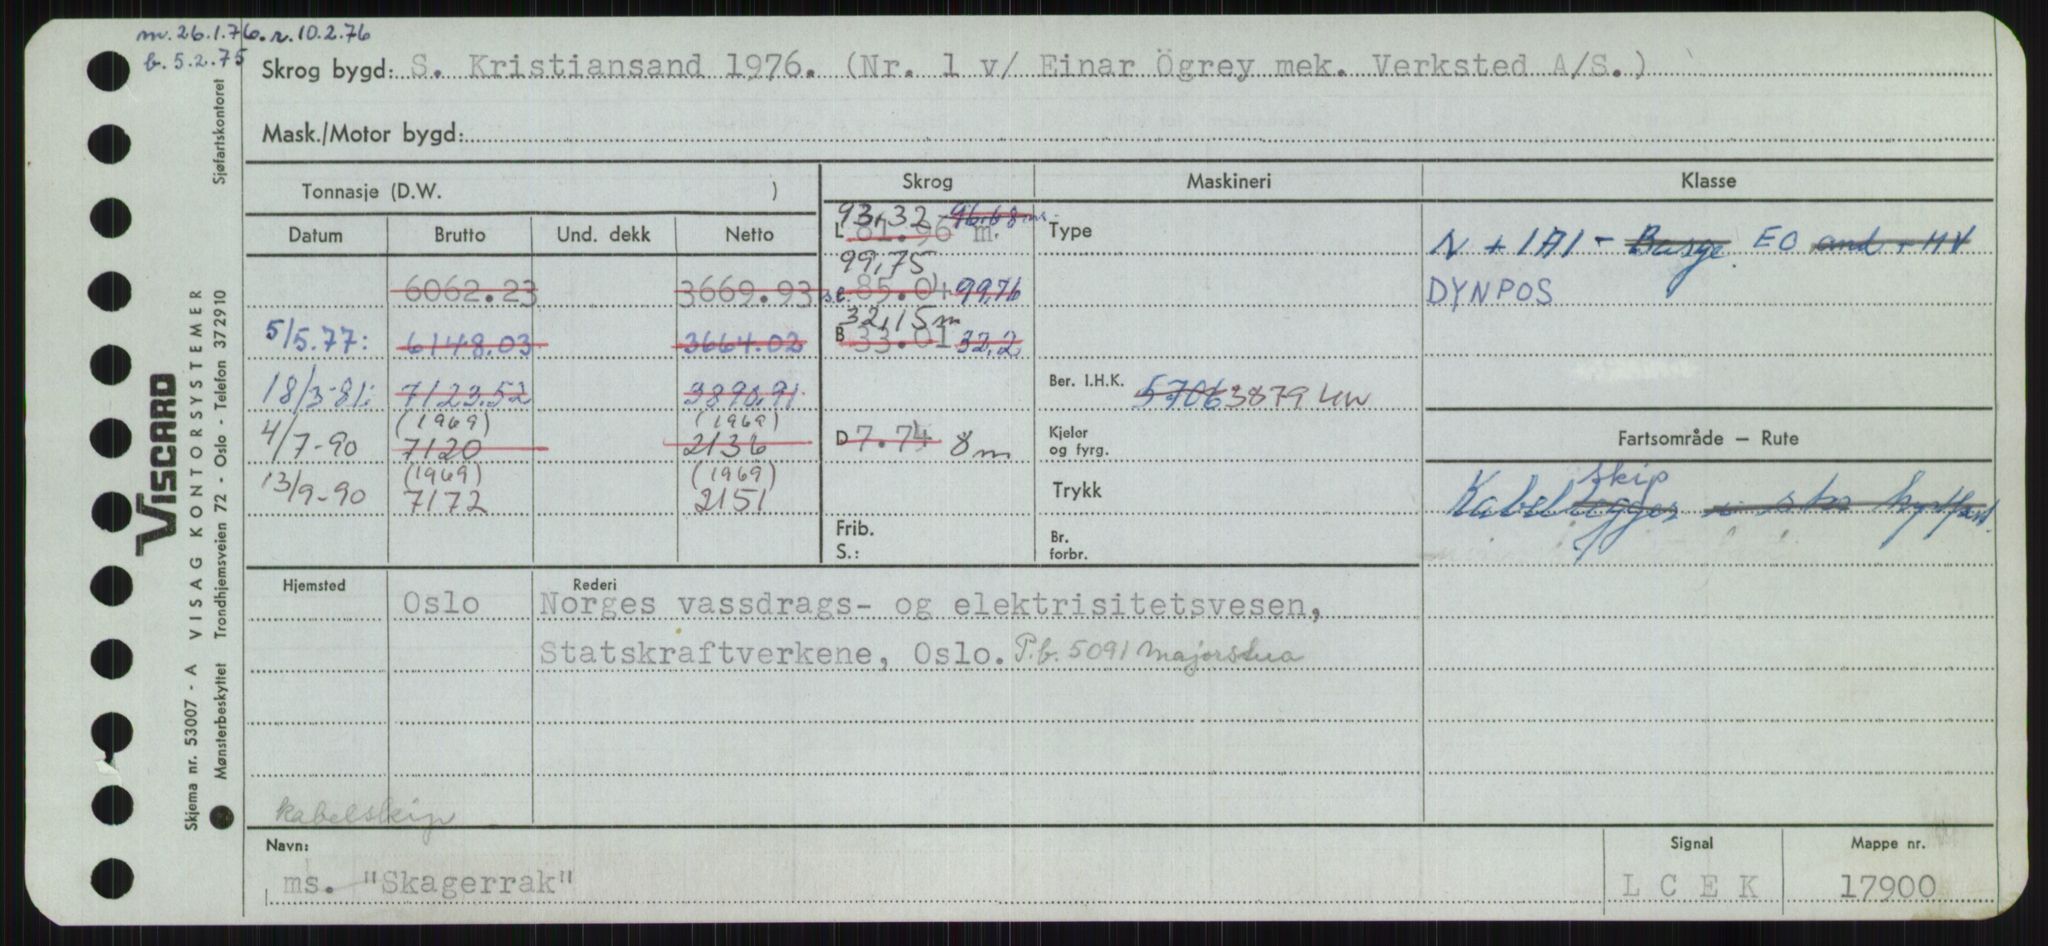 m. 26.1.76. r. 10.2.76
b. 5.2.75
Skrog bygd: S. Kristiansand 1976. (Nr. 1 v/ Einar Ögrey mek. Verksted A/S.)
Mask./Motor bygd:
Tonnasje (D.W. )
Skrog
Maskineri
Klasse
Datum
Brutto
Und. dekk
Netto
93,32 96,68 m.
L 81.96 m.
Type
N + 1A1 - Barge EO and + HV
99,75
6062.23 3669.93 s.l. 85.04 99,76
DYNPOS
32,15 m
5/5.77: 6148.03 3664.02 B 33.01 32,2
18/3-81: 7123.52 3890,91
Ber. I.H.K. 5706 3879 kW
(1969) (1969)
4/7-90 7120 2136 D 7.74 8 m
Kjeler
og fyrg.
Fartsområde — Rute
(1969) (1969)
13/9-90 7172 2151
Trykk
skip
Kabellegger
Frib.
S.:
Br.
forbr.
Hjemsted
Rederi
Oslo
Norges vassdrags- og elektrisitetsvesen,
Statskraftverkene, Oslo. P.b. 5091 Majorstua
kabelskip
Navn:
ms. "Skagerrak"
Signal
L C E K
Mappe nr.
17900
VISCARD
Skjema nr. 53007 - A VISAG KONTORSYSTEMER
Mønsterbeskyttet Trondhjemsveien 72 - Oslo - Telefon 372910 Sjøfartskontoret